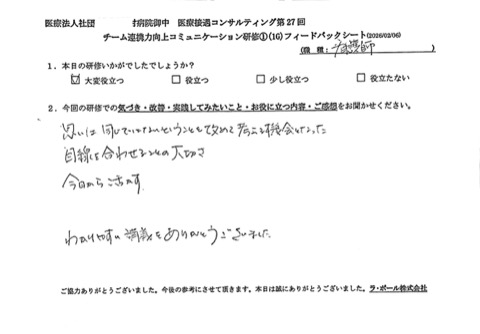 医療法人社団 村病院御中 医療接遇コンサルティング第27回
チーム連携力向上コミュニケーション研修①(1G)フィードバックシート(2026/02/06)
(職種:看護師)
1.本日の研修いかがでしたでしょうか?
☑ 大変役立つ □ 役立つ □ 少し役立つ □ 役立たない
2.今回の研修での気づき・改善・実践してみたいこと・お役に立つ内容・ご感想をお聞かせください。
思いは同じでいかないということを改めて考える機会となった
目線を合わせることの大切さ
今日から活かす
わかりやすい講義をありがとうございました
ご協力ありがとうございました。今後の参考にさせて頂きます。本日は誠にありがとうございました。ラ・ポール株式会社